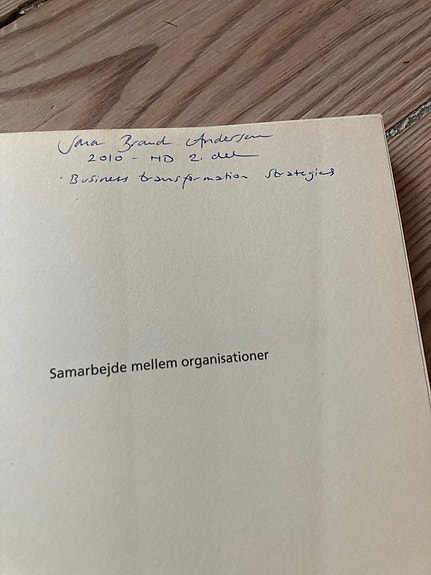 Sara Brand Andersen
2010 - HD 2. del
· Business transformation strategies
Samarbejde mellem organisationer